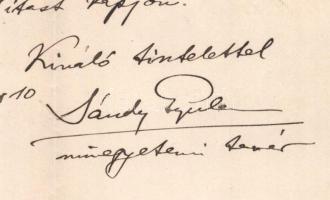 kapjon.
Kiváló tisztelettel
10
Sándy Gyula
műegyetemi tanár